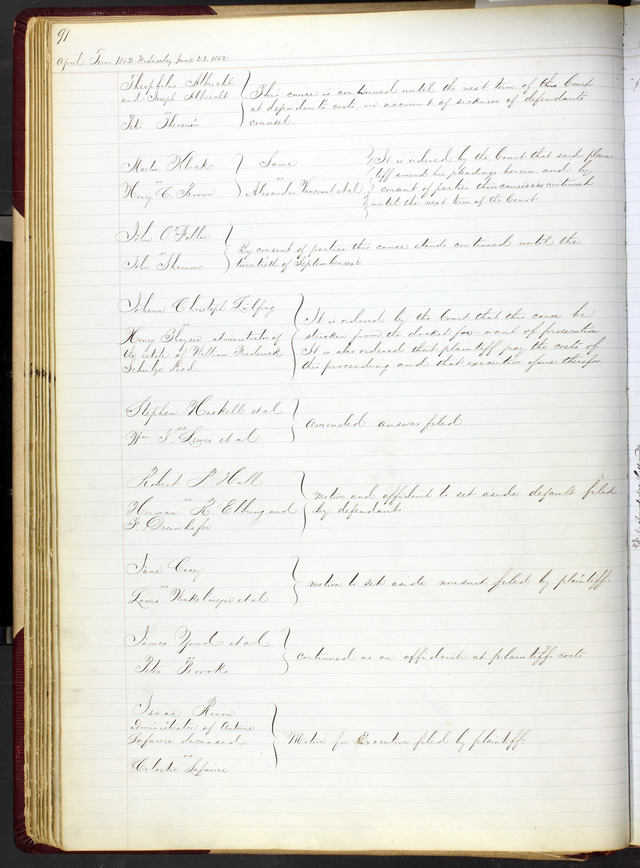 91
April Term 1852 Wednesday June 23. 1852
Theophilus Albrecht
and Joseph Albrecht
vs
Peter
This cause is continued until the next term of this Court
at defendants costs, on account of sickness of defendants
counsel
Martin Klock
vs
Henry C. Brown
Same
vs
Alexander Vancourt et al
It is ordered by the Court that said plain-
tiff amend his pleadings herein and by
consent of parties these causes are continued
until the next term of the Court
John O'Fallon
vs
John
By consent of parties this cause stands continued until the
twentieth of September next
Johann Christoph
vs
Henry Kayser administrator of
the estate of William Frederick
Schulze decd.
It is ordered by the Court that this cause be
stricken from the docket for want of prosecution
It is also ordered that plaintiff pay the costs of
this proceeding and that execution issue therefor
Stephen Haskell et al
vs
Wm J. Lewis et al
Amended answer filed
Robert P Hall
vs
Herman R. Ebling and
F. Dreinhofer
Motion and affidavit to set aside default filed
by defendants
Jane Casey
vs
Louis Winkelmeyer et al
Motion to set aside nonsuit filed by plaintiff
James Youd et al
vs
Peter Brooks
Continued as on affidavit at plaintiffs costs
Isaac
administrator of Antoine
Lafaivre deceased
vs
Celeste Lafaivre
Motion for Execution filed by plaintiff